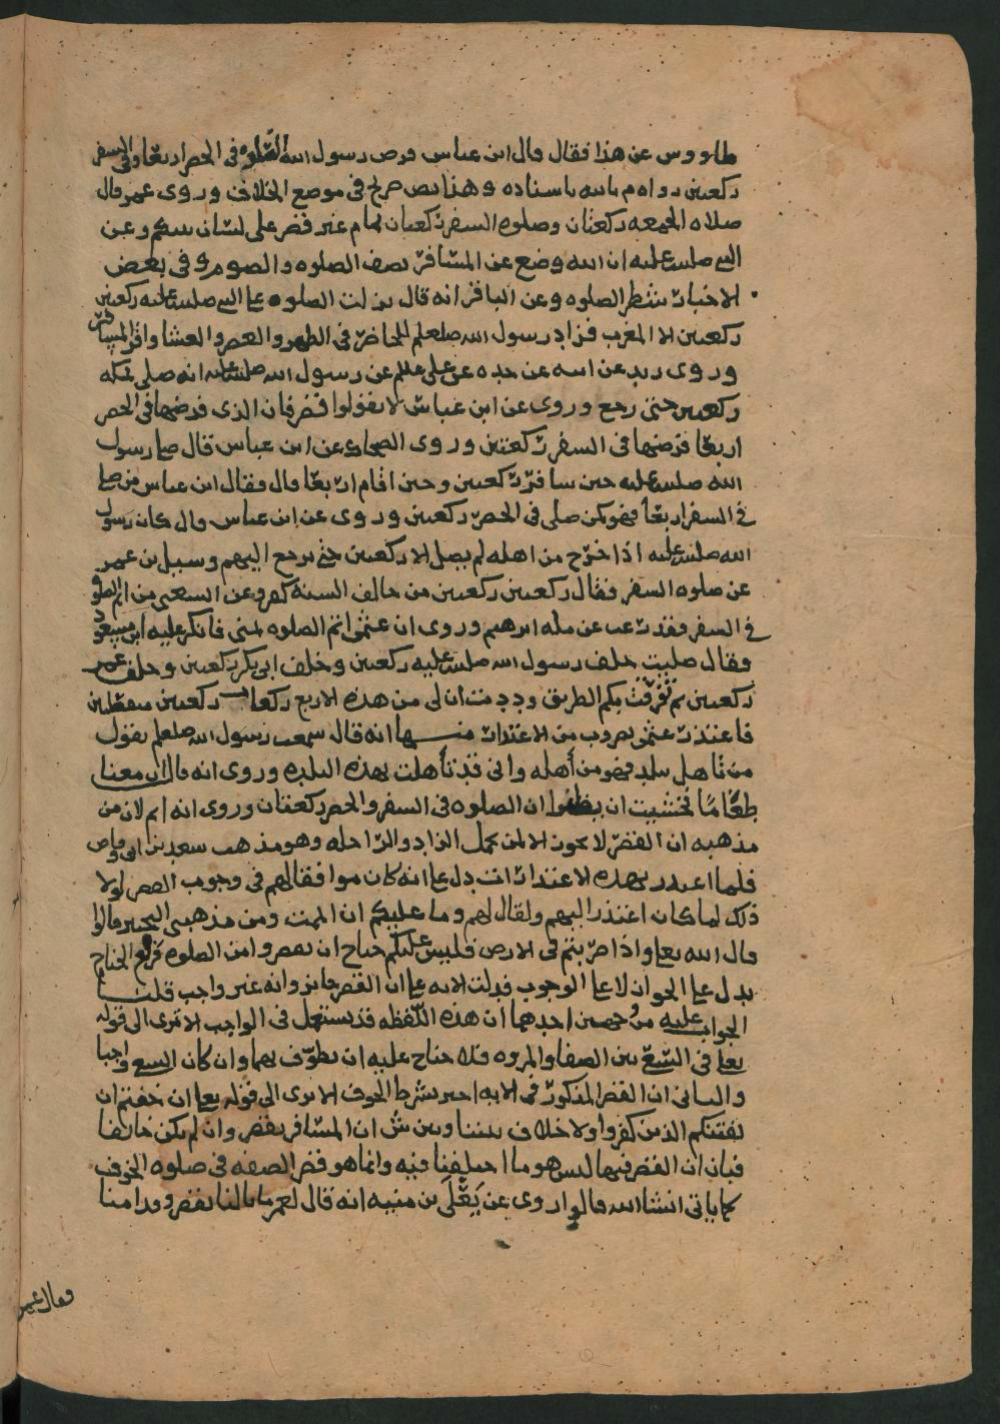 طاووس عن هذا فقال قال ابن عباس فرض رسول الله الصلوة في الحضر اربعا وفي السفر
ركعتين رواه م بالله باسناده وهذا نص صريح في موضع الخلاف وروى عمر قال
صلاة الجمعه ركعتان وصلوة السفر ركعتان تمام غير قصر على لسان نبيكم وعن
النبي صلى الله عليه ان الله وضع عن المسافر نصف الصلوة والصوم وفي بعض
الاخبار شطر الصلوة وعن الباقر انه قال نزلت الصلوة على النبي صلى الله عليه ركعتين
ركعتين الا المغرب فزاد رسول الله صلعم للحاضر في الظهر والعصر والعشا واقر المسافر
وروى زيد عن ابيه عن جده عن علي علىلم عن رسول الله صلى الله عليه انه صلى بمكه
ركعتين حتى رجع وروى عن ابن عباس لا تقولوا قصر فان الذي فرضها في الحضر
اربعا فرضها في السفر ركعتين وروى الضحاك عن ابن عباس قال صلى رسول
الله صلى الله عليه حين سافر ركعتين وحين اقام اربعا قال فقال ابن عباس من صلى
في السفر اربعا فهو كمن صلى في الحضر ركعتين وروى عن ابن عباس قال كان رسول
الله صلى الله عليه اذا خرج من اهله لم يصل الا ركعتين حتى يرجع اليهم وسيل بن عمر
عن صلوة السفر فقال ركعتين ركعتين من خالف السنه كفر وعن الشعبي من اتم الصلوة
في السفر فقد رغب عن مله ابرهيم وروى ان عثمن اتم الصلوة بمنى فانكر عليه ابن مسعود
وقال صليت خلف رسول الله صلى الله عليه ركعتين وخلف ابي بكر ركعتين وخلف عمر
ركعتين ثم تفرقت بكم الطريق ووددت ان لي من هذه الاربع ركعات ركعتين متقبلتين
فاعتذر عثمن بضروب من الاعتذار منها انه قال سمعت رسول الله صلعم يقول
من تاهل ببلد فهو من أهله واني قد تأهلت بهذه البلده وروى انه قال ان معنا
طغاما فخشيت ان يظنوا ان الصلوة في السفر والحضر ركعتان وروى انه اتم لان من
مذهبه ان القصر لا يجوز الا لمن يحمل الزاد والراحله وهو مذهب سعد بن ابي وقاص
فلما اعتذر بهذه الاعتذارات دل على انه كان موافقا لهم في وجوب القصر لولا
ذلك لما كان اعتذر اليهم ولقال لهم وما عليكم ان اتممت ومن مذهبي التخيير قالوا
قال الله تعلى واذا ضربتم في الارض فليس عليكم جناح ان تقصروا من الصلوة فرفع الجناح
يدل على الجواز لا على الوجوب فدلت الايه على ان القصر جايز وانه غير واجب قلنا
الجواب عليه من وجهين احدهما ان هذه اللفظه قد يستعمل في الواجب الا ترى الى قوله
تعلى في السعي بين الصفا والمروه فلا جناح عليه ان يطوف بهما وان كان السعي واجبا
والثاني ان القصر المذكور في الايه اخبر بشرط الخوف الا ترى الى قوله تعلى ان خفتم ان
يفتنكم الذين كفروا ولا خلاف بيننا وبين ش ان المسافر يقصر وان لم يكن خايفا
فبان ان القصر فيها ليس هو ما اختلفنا فيه وانما هو قصر الصفه في صلوة الخوف
كما ياتي انشا الله قالوا روي عن يَعْلَى بن منبه انه قال لعمر ما بالنا نقصر وقد امنا
فقال عمر